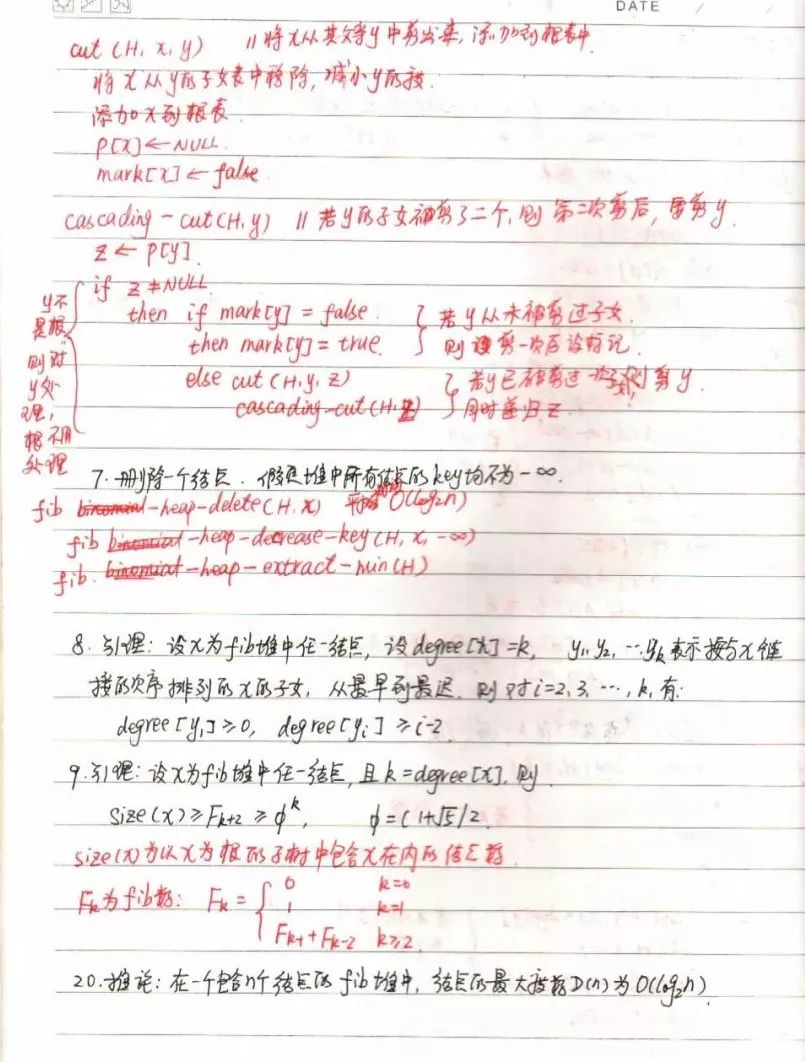 DATE / /
cut (H, x, y) // 将x从其父母y中剪出来, 添加到根表中
将x从y的子女表中移除, 减小y的度.
添加x到根表
P[x] ← NULL.
mark[x] ← false.
cascading-cut(H, y) // 若y的子女被剪了二个, 则第二次剪后, 要剪y.
z ← P[y].
if z ≠ NULL.
then if mark[y] = false. 若y从未被剪过子女.
then mark[y] = true. 则剪一次后设标记.
else cut (H, y, z) 若y已被剪过一次子女, 则剪y.
cascading-cut(H, z) 同时递归z.
y不是根则对y处理, 根不用处理
7. 删除一个结点. 假定堆中所有结点的key均不为 -∞.
fib binomial-heap-delete(H, x) 平摊 O(log₂n)
fib binomial-heap-decrease-key(H, x, -∞)
fib. binomial-heap-extract-min(H)
8. 引理: 设x为fib堆中任一结点, 设degree[x]=k, y₁, y₂, …yₖ表示按与x链
接的次序排列的x的子女, 从最早到最迟. 则对i=2, 3, …, k, 有:
degree[y₁] ≥ 0, degree[yᵢ] ≥ i-2.
9. 引理: 设x为fib堆中任一结点, 且k=degree[x], 则.
size(x) ≥ Fₖ₊₂ ≥ ϕᵏ, ϕ = (1+√5/2.
size(x)为以x为根的子树中包含x在内的结点数.
Fₖ为fib数: Fₖ = { 0 k=0
1 k=1
Fₖ₋₁ + Fₖ₋₂ k≥2.
20. 推论: 在一个包含n个结点的fib堆中, 结点的最大度数D(n)为O(log₂n)